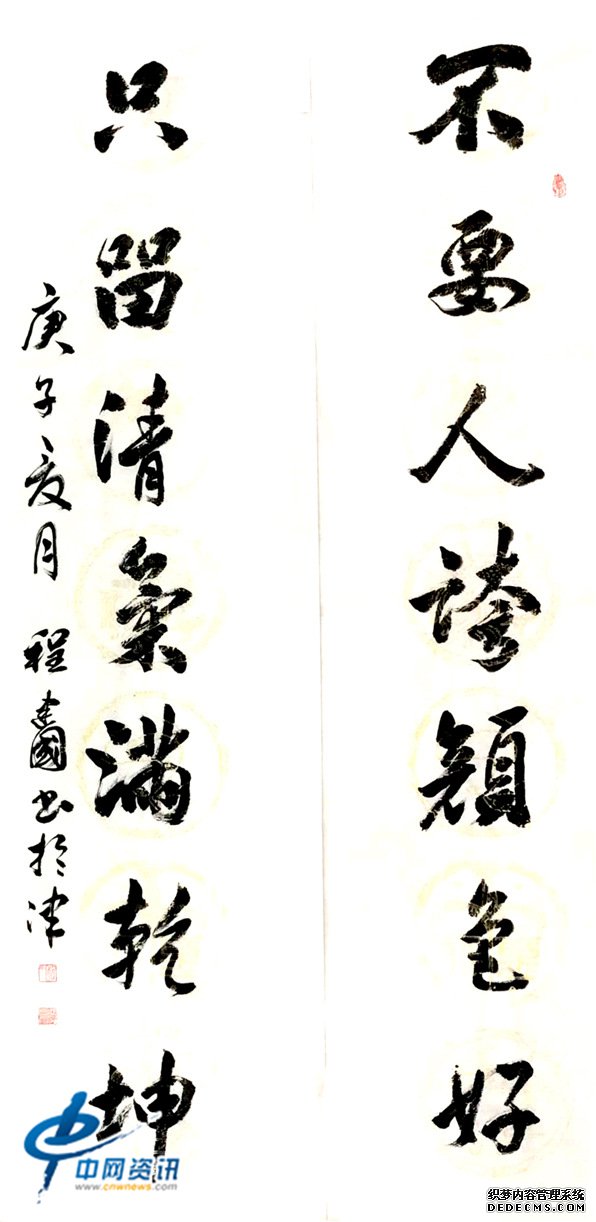 不要人誇顔色好
只留清氣滿乾坤
庚子夏月 程建國书於津
中网资讯
www.cnwnews.com
织梦内容管理系统
DEDECMS.COM